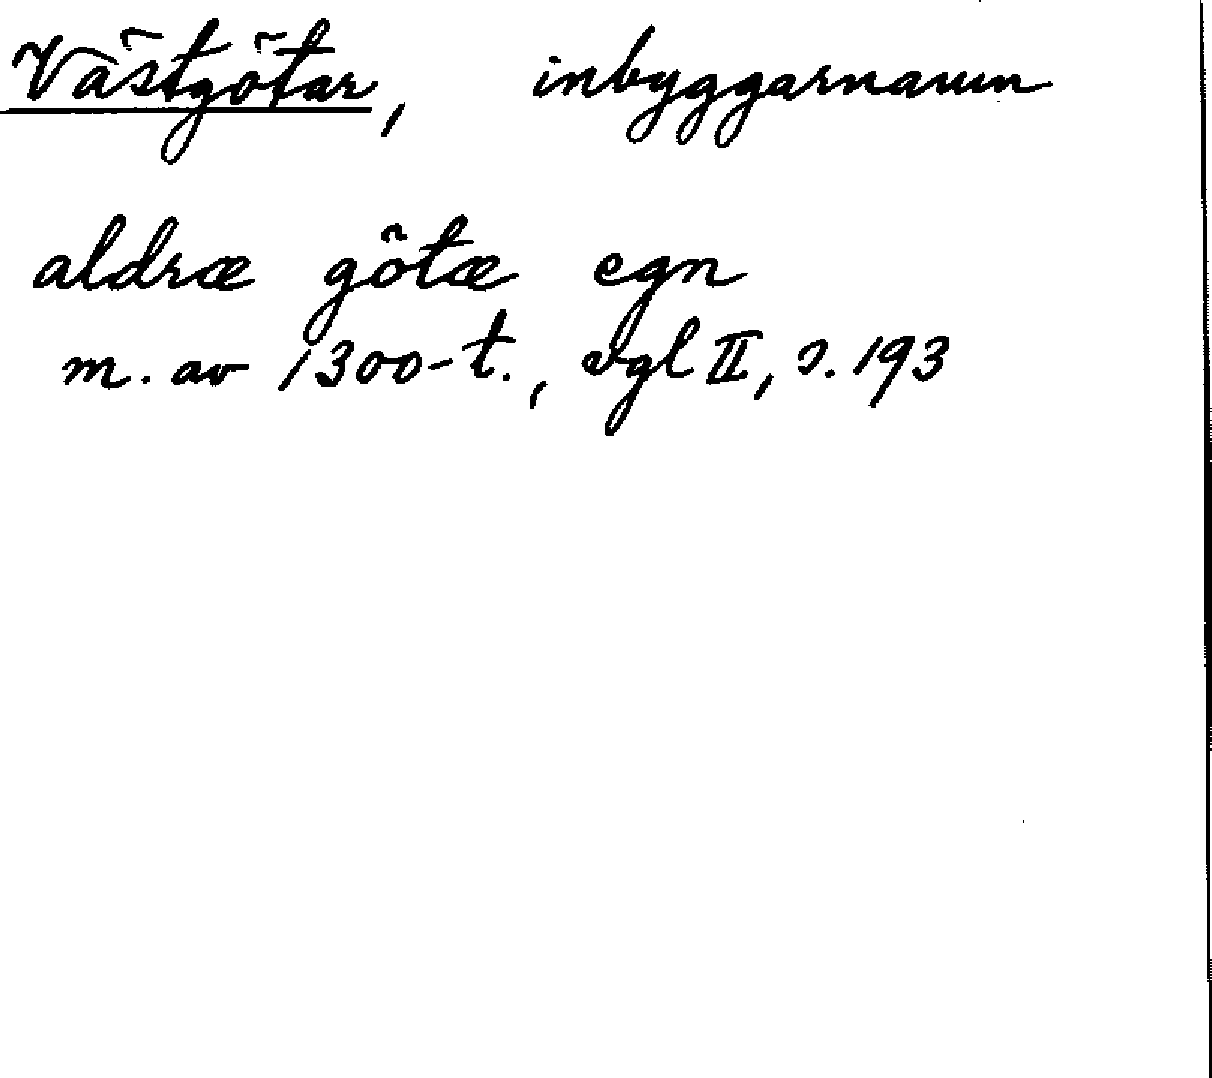 Västgötar, inbyggarnamn
aldræ götæ egn
m. av 1300-t., vgl II, s. 193